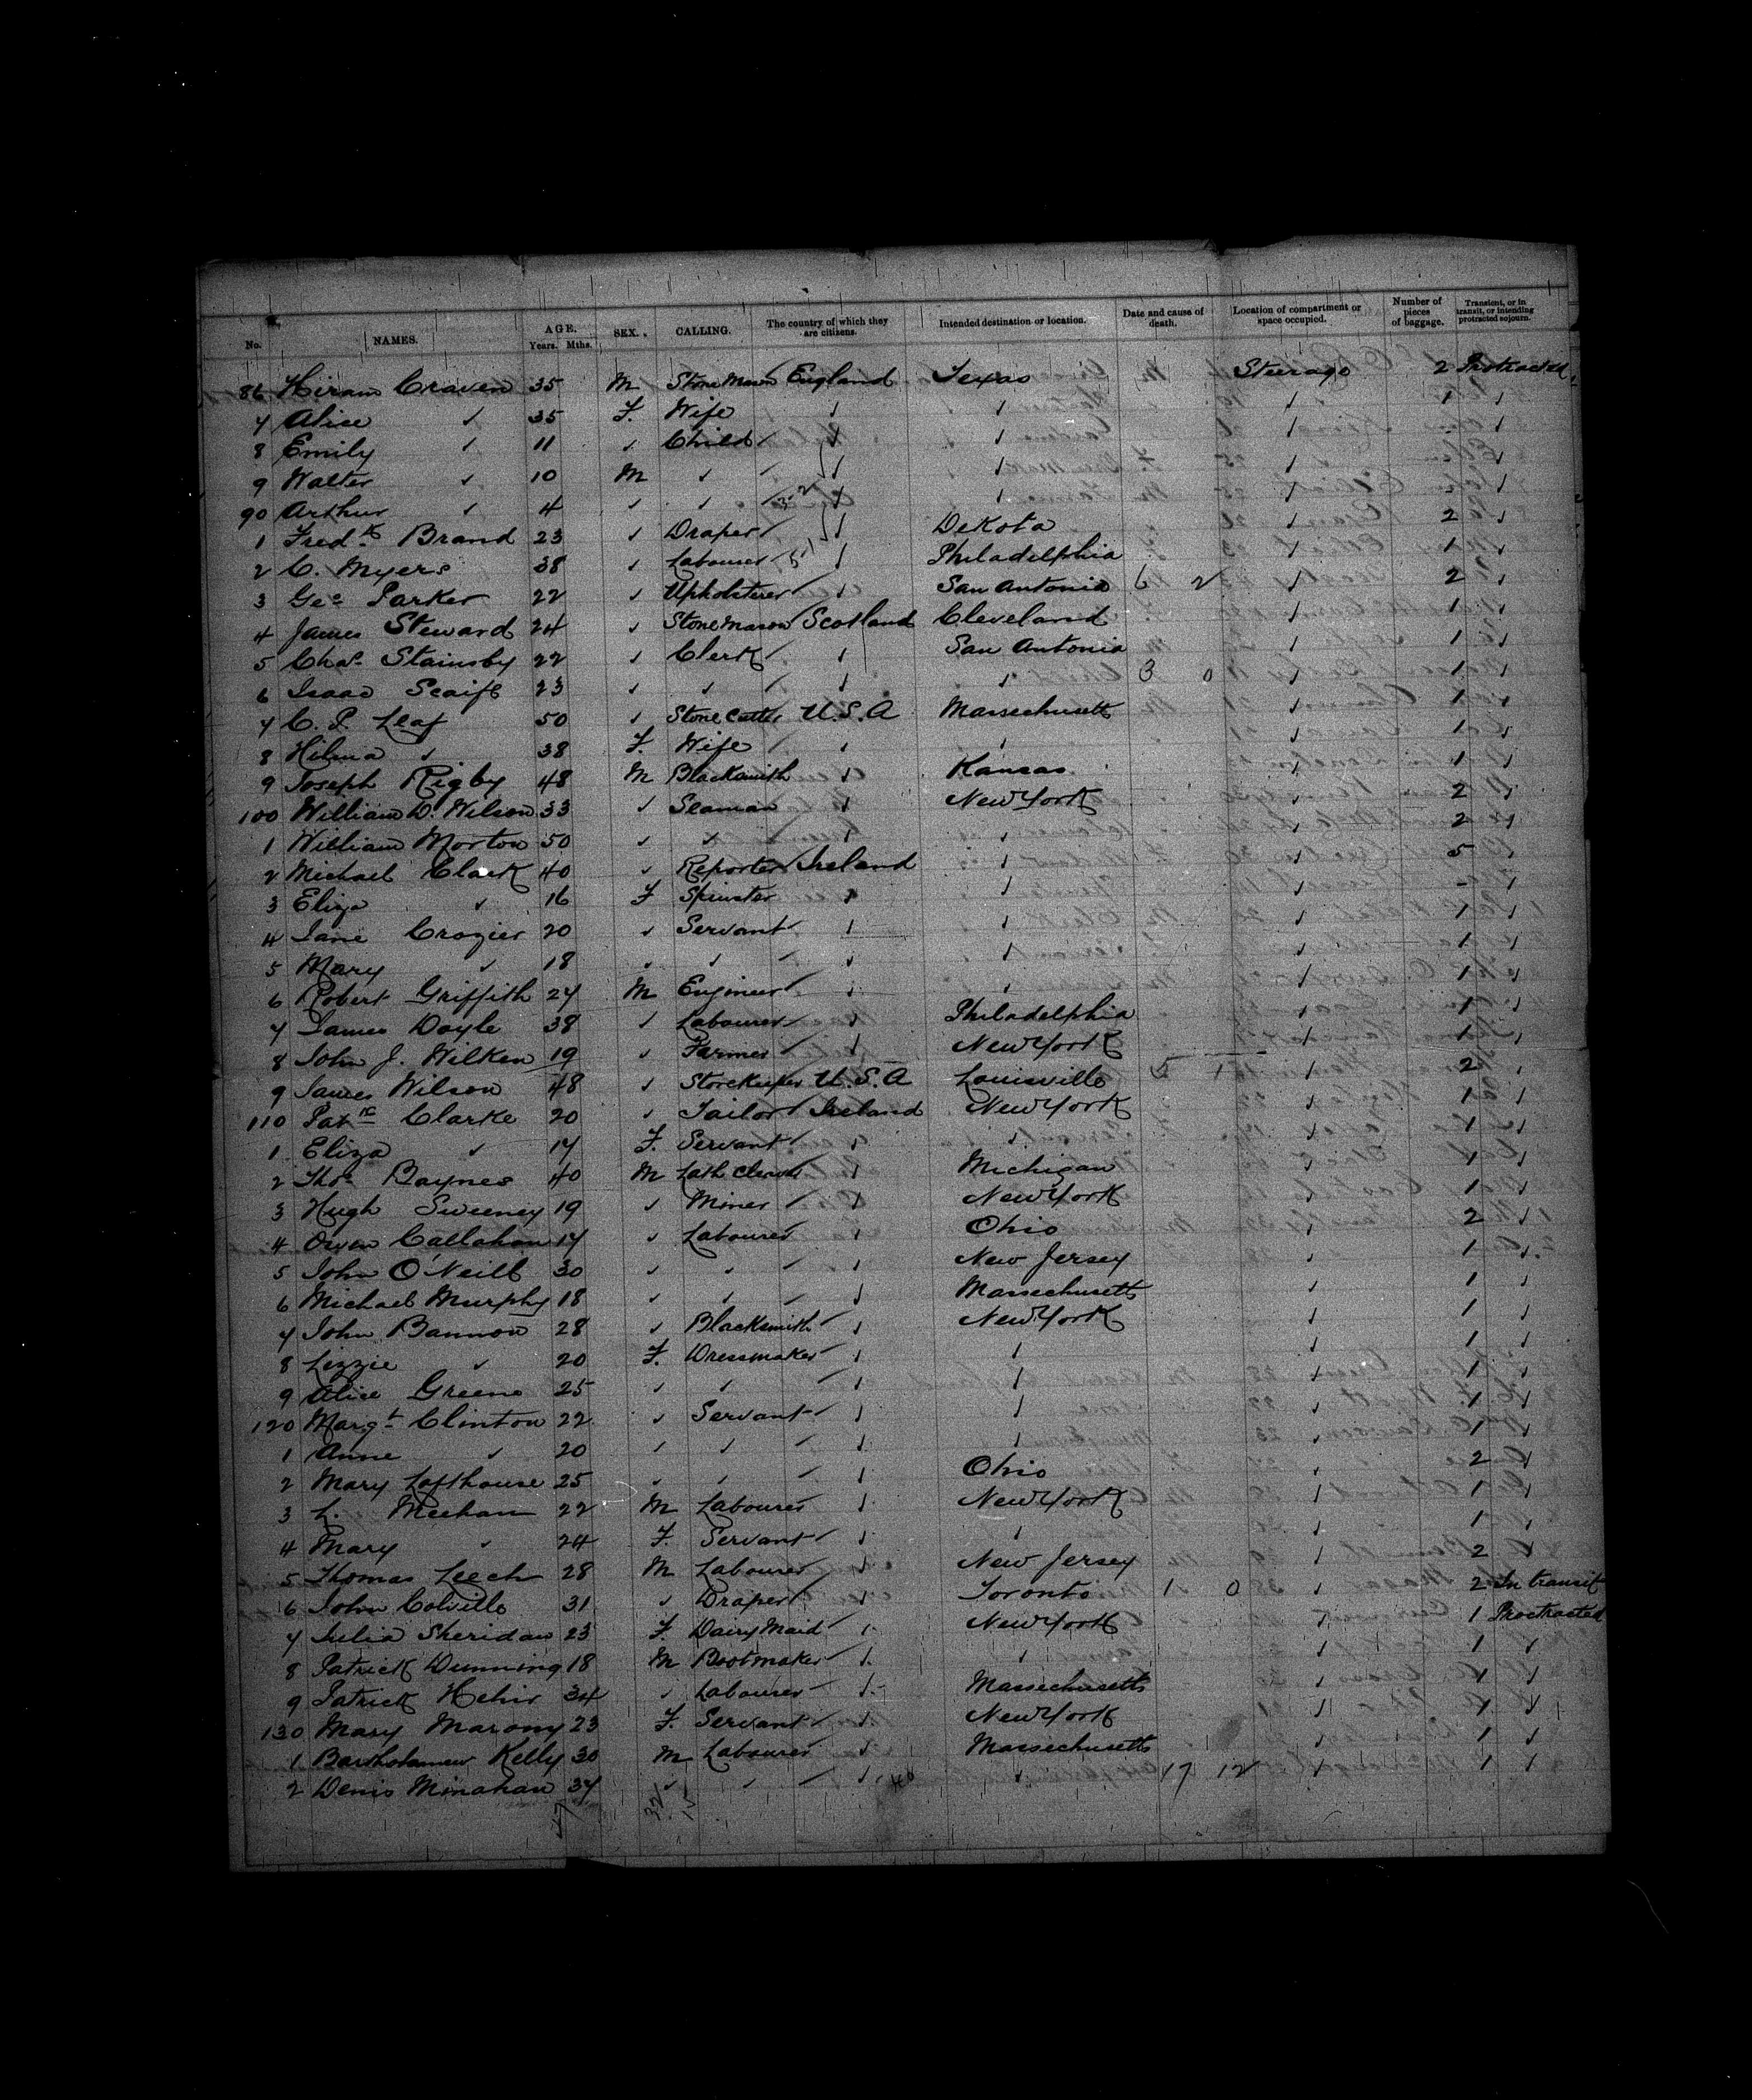 No. NAMES. AGE. Years. Mths. SEX. CALLING. The country of which they are citizens. Intended destination or location. Date and cause of death. Location of compartment or space occupied. Number of pieces of baggage. Transient, or in transit, or intending protracted sojourn.
86 Hiram Craven 35 M Stone Mason England Texas Steerage 2 Protracted
7 Alice ✓ 35 F. Wife ✓ ✓ ✓ 1 ✓
8 Emily ✓ 11 ✓ Child ✓ ✓ ✓ - ✓
9 Walter ✓ 10 M ✓ ✓ ✓ ✓ ✓
90 Arthur ✓ 4 ✓ ✓ ✓ ✓ ✓ ✓
1 Fredk Brand 23 ✓ Draper ✓ DeKota ✓ 2 ✓
2 C. Myers 38 ✓ Labourer ✓ Philadelphia ✓ 1 ✓
3 Geo Parker 22 ✓ Upholsterer ✓ San Antonia 6 2 ✓ 2 ✓
4 James Steward 24 ✓ Stone Mason Scotland Cleveland ✓ 1 ✓
5 Chas Stainsby 22 ✓ Clerk ✓ San Antonia ✓ 1 ✓
6 Isaac Scaife 23 ✓ ✓ ✓ ✓ 3 0 ✓ 1 ✓
7 C. P. Leaf 50 ✓ Stone Cutter U.S.A Massechusetts ✓ 1 ✓
8 Hilma ✓ 38 F. Wife ✓ ✓ ✓ 1 ✓
9 Joseph Rigby 48 M Blacksmith ✓ Kansas ✓ 1 ✓
100 William D. Wilson 33 ✓ Seaman ✓ New York ✓ 2 ✓
1 William Morton 50 ✓ ✓ ✓ ✓ ✓ 2 ✓
2 Michael Clark 40 ✓ Reporter Ireland ✓ ✓ 5 ✓
3 Eliza ✓ 16 F Spinster ✓ ✓ ✓ - ✓
4 Jane Crozier 20 ✓ Servant ✓ ✓ ✓ 1 ✓
5 Mary ✓ 18 ✓ ✓ ✓ ✓ ✓ 1 ✓
6 Robert Griffith 27 M Engineer ✓ ✓ ✓ 1 ✓
7 James Doyle 38 ✓ Labourer ✓ Philadelphia ✓ 1 ✓
8 John J. Wilken 19 ✓ Farmer ✓ New York ✓ 1 ✓
9 James Wilson 48 ✓ Storekeeper U.S.A Louisville 5 1 ✓ 2 ✓
110 Patrk Clarke 20 ✓ Tailor Ireland New York ✓ 1 ✓
1 Eliza ✓ 17 F. Servant ✓ ✓ ✓ 1 ✓
2 Thos Baynes 40 M Lath Cleaver ✓ Michigan ✓ 1 ✓
3 Hugh Sweeney 19 ✓ Miner ✓ New York ✓ 1 ✓
4 Owen Callahan 17 ✓ Labourer ✓ Ohio ✓ 2 ✓
5 John O'Neill 30 ✓ ✓ ✓ New Jersey ✓ 1 ✓
6 Michael Murphy 18 ✓ ✓ ✓ Massechusetts ✓ 1 ✓
7 John Bannon 28 ✓ Blacksmith ✓ New York ✓ 1 ✓
8 Lizzie ✓ 20 F. Dressmaker ✓ ✓ ✓ 1 ✓
9 Alice Greene 25 ✓ ✓ ✓ ✓ ✓ 1 ✓
120 Margt Clinton 22 ✓ Servant ✓ ✓ ✓ 1 ✓
1 Anne ✓ 20 ✓ ✓ ✓ ✓ ✓ 1 ✓
2 Mary Lofthouse 25 ✓ ✓ ✓ Ohio ✓ 2 ✓
3 L. Meehan 22 M Labourer ✓ New York ✓ 1 ✓
4 Mary ✓ 24 F. Servant ✓ ✓ ✓ 1 ✓
5 Thomas Leech 28 M Labourer ✓ New Jersey ✓ 2 ✓
6 John Colville 31 ✓ Draper ✓ Toronto 1 0 ✓ 2 In transit
7 Julia Sheridan 23 F. Dairy Maid ✓ New York ✓ 1 Proctracted
8 Patrick Dunning 18 M Bootmaker ✓ ✓ ✓ 1 ✓
9 Patrick Hehir 34 ✓ Labourer ✓ Massechusetts ✓ 1 ✓
130 Mary Marony 23 F. Servant ✓ New York ✓ 1 ✓
1 Bartholomew Kelly 30 M Labourer ✓ Massechusetts ✓ 1 ✓
2 Denis Minahan 37 ✓ ✓ ✓ ✓ 17 12 ✓ 1 ✓